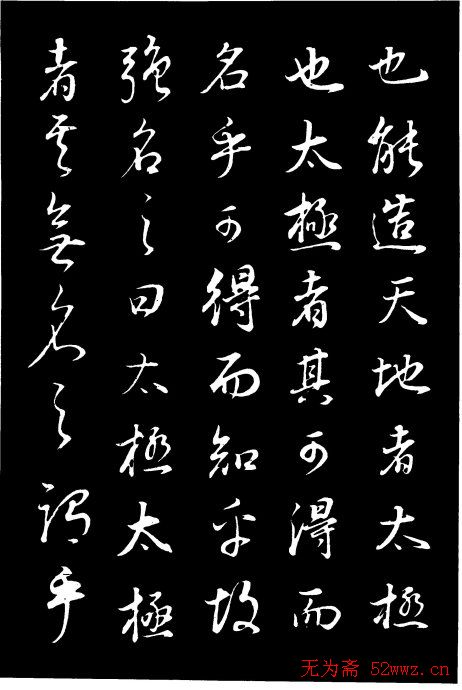 也能造天地者太極
也太極者其可得而
名乎可得而知乎故
強名之曰太極太極
者其無名之謂乎
无为斋 52wwz.cn